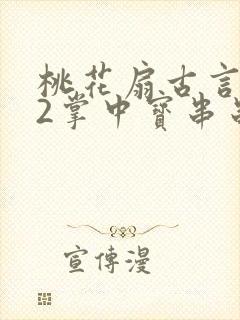 桃花扇古言
2掌中寳串
宣傳漫